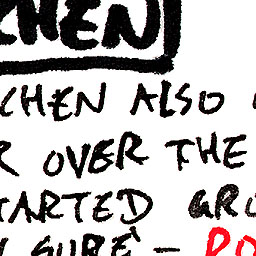 CHEN
CHEN ALSO
R OVER THE
TARTED GRO
SURE - RO